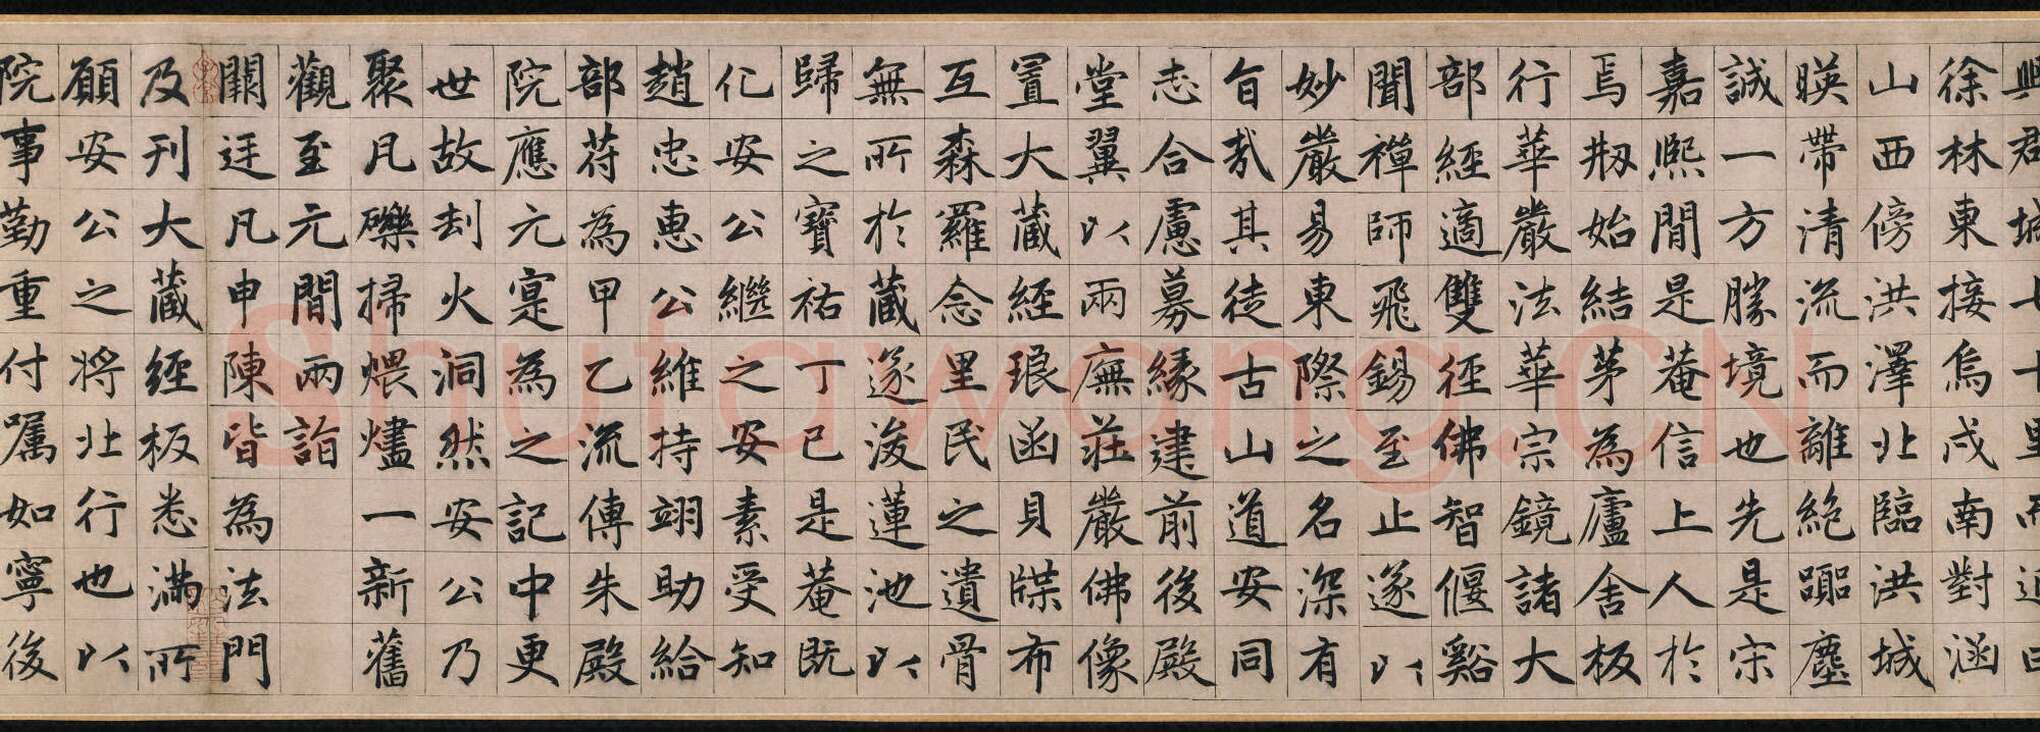 興郡城七十里而近曰
徐林東接烏戍南對涵
山西傍洪澤北臨洪城
暎帶清流而離絕嚻塵
誠一方勝境也先是宋
嘉熙間是菴信上人於
焉刱始結茅為廬舍板
行華嚴法華宗鏡諸大
部經適雙徑佛智偃谿
聞禪師飛錫至止遂以
妙嚴易東際之名深有
旨哉其徒古山道安同
志合慮募緣建前後殿
堂翼以兩廡莊嚴佛像
置大藏經琅函貝牒布
互森羅念里民之遺骨
無所於藏遂浚蓮池以
歸之寶祐丁巳是菴既
化安公繼之安素受知
趙忠惠公維持翊助給
部符為甲乙流傳朱殿
院應元寔為之記中更
世故刦火洞然安公乃
聚凡礫掃煨燼一新舊
觀至元間兩詣
闕廷凡申陳皆為法門
及刊大藏經板悉滿所
願安公之將北行也以
院事勤重付囑如寧後
Shufawang.CN